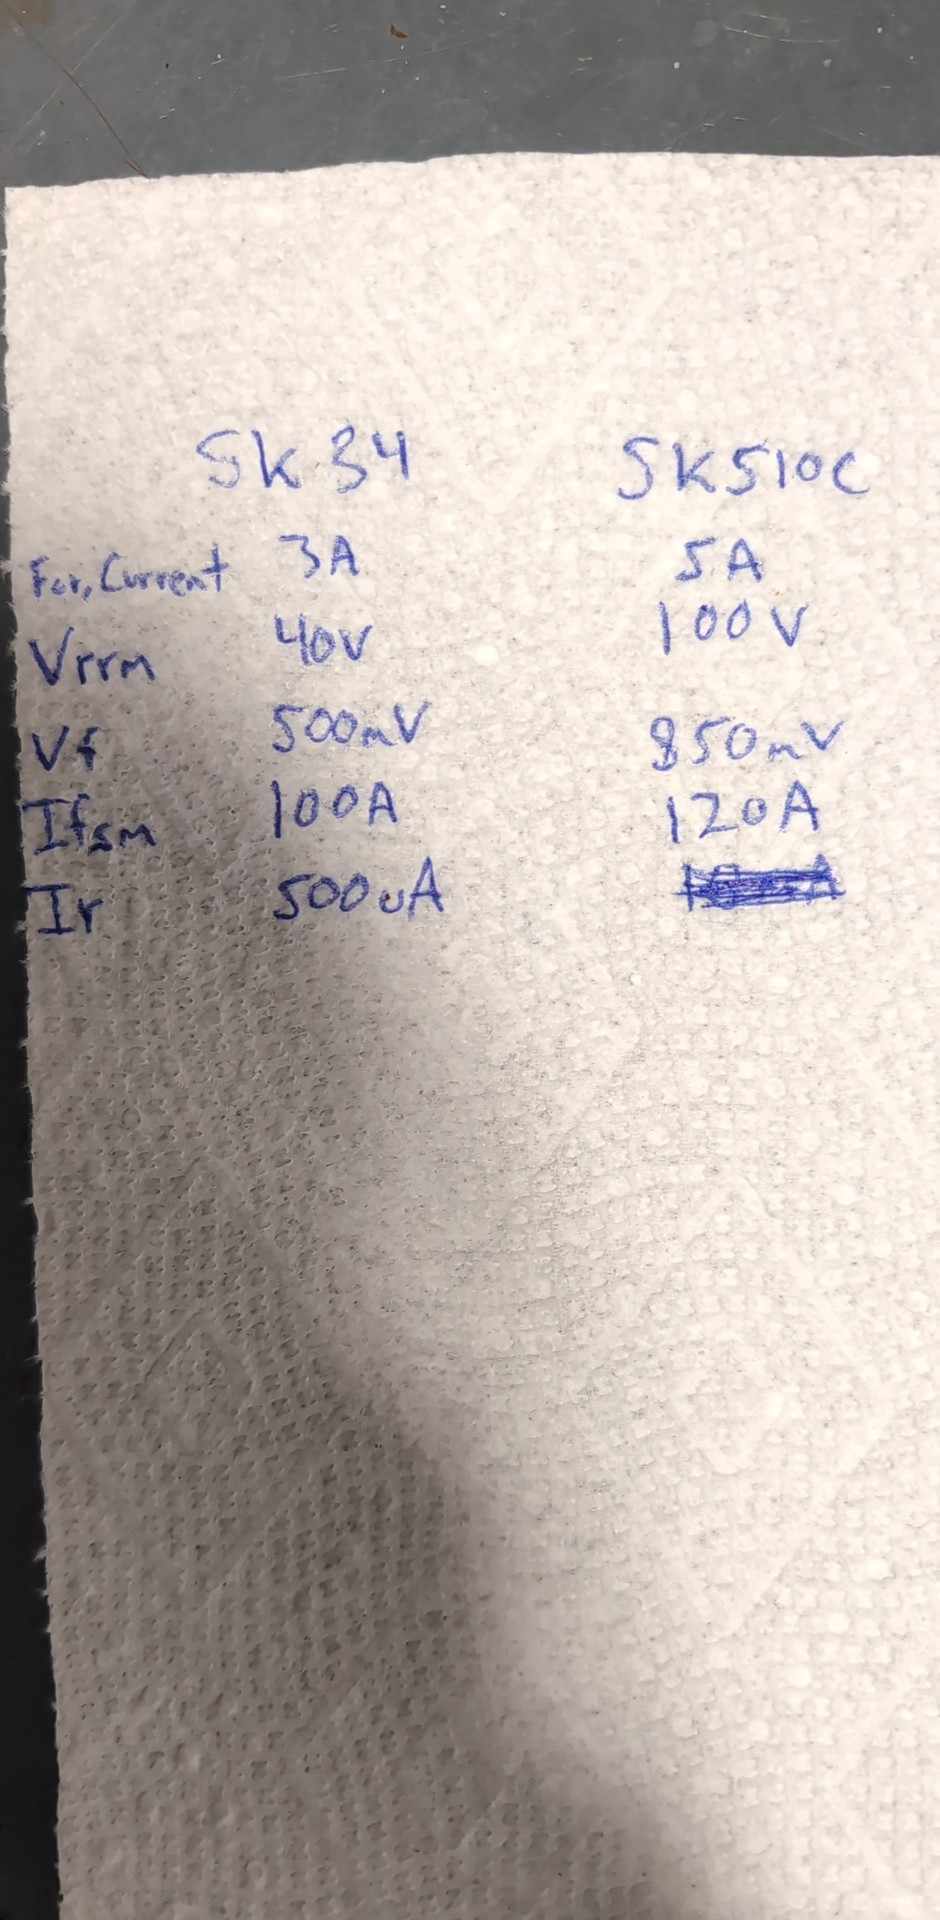 SK34 SK510C
For, Current 3A 5A
Vrrm 40V 100V
Vf 500mV 850mV
Ifsm 100A 120A
Ir 500uA